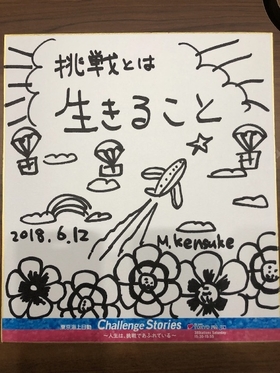 挑戦とは
生きること
2018.6.12
M.Kensuke
東京海上日動 Challenge Stories
〜人生は、挑戦であふれている〜